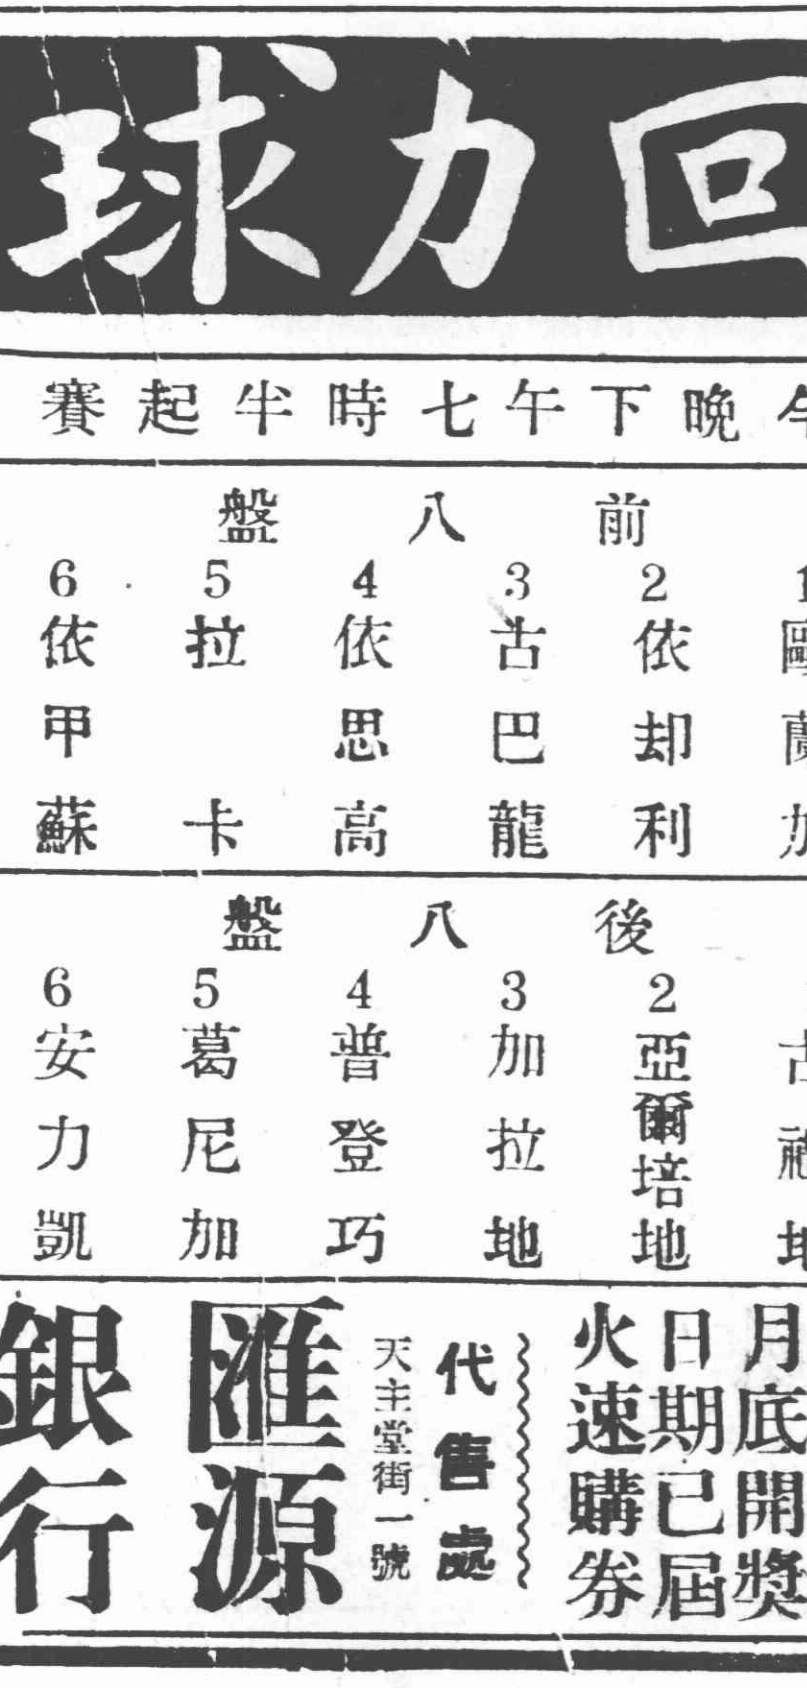 回力球
今晚下午七時半起賽
前八盤
1 歐蘭加
2 依却利
3 古巴龍
4 依思高
5 拉卡
6 依甲蘇
後八盤
古禮地
2 亞爾培地
3 加拉地
4 普登巧
5 葛尼加
6 安力凱
月底開獎
日期已屆
火速購券
代售處
天主堂街一號
匯源
銀行